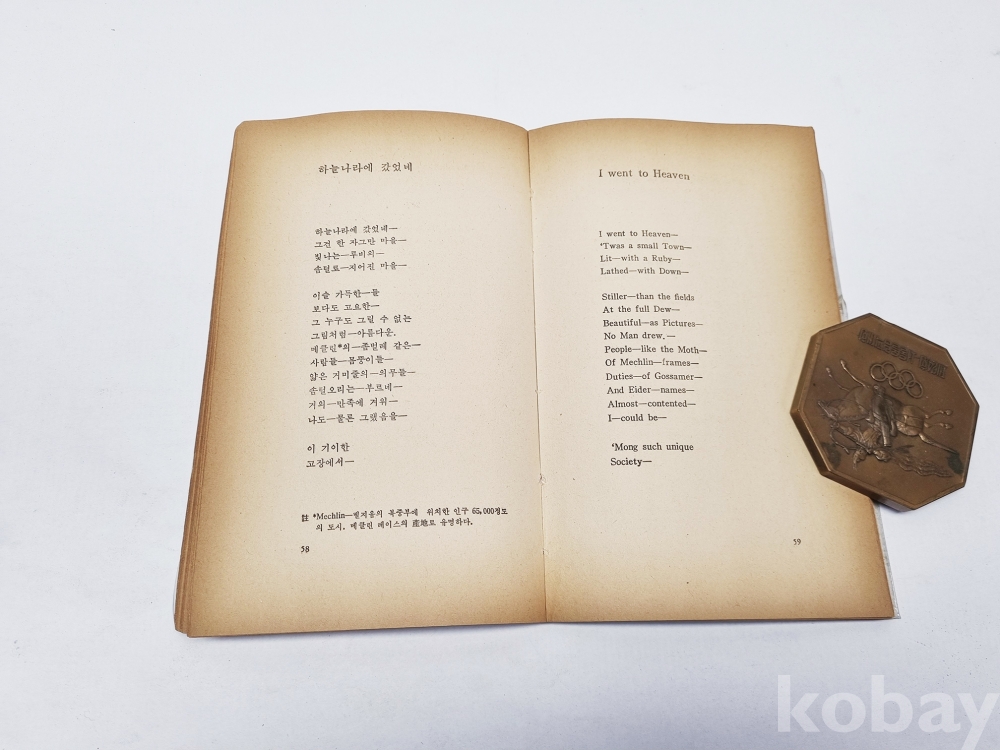 하늘나라에 갔었네
하늘나라에 갔었네—
그건 한 자그만 마을—
빛나는—루비의—
솜털로—지어진 마을—
이슬 가득한—들
보다도 고요한—
그 누구도 그릴 수 없는
그림처럼—아름다운.
메클린*의—좀벌레 같은—
사람들—몸뚱이들—
얇은 거미줄의—의무들—
솜털오리는—부르네—
거의—만족에 겨워—
나도—물론 그랬음을—
이 기이한
고장에서—
註 *Mechlin—벨지움의 북중부에 위치한 인구 65,000정도
의 도시. 메클린 레이스의 産地로 유명하다.
58
I went to Heaven
I went to Heaven—
'Twas a small Town—
Lit—with a Ruby—
Lathed—with Down—
Stiller—than the fields
At the full Dew—
Beautiful—as Pictures—
No Man drew.—
People—like the Moth—
Of Mechlin—frames—
Duties—of Gossamer—
And Eider—names—
Almost—contented—
I—could be—
'Mong such unique
Society—
59
kobay